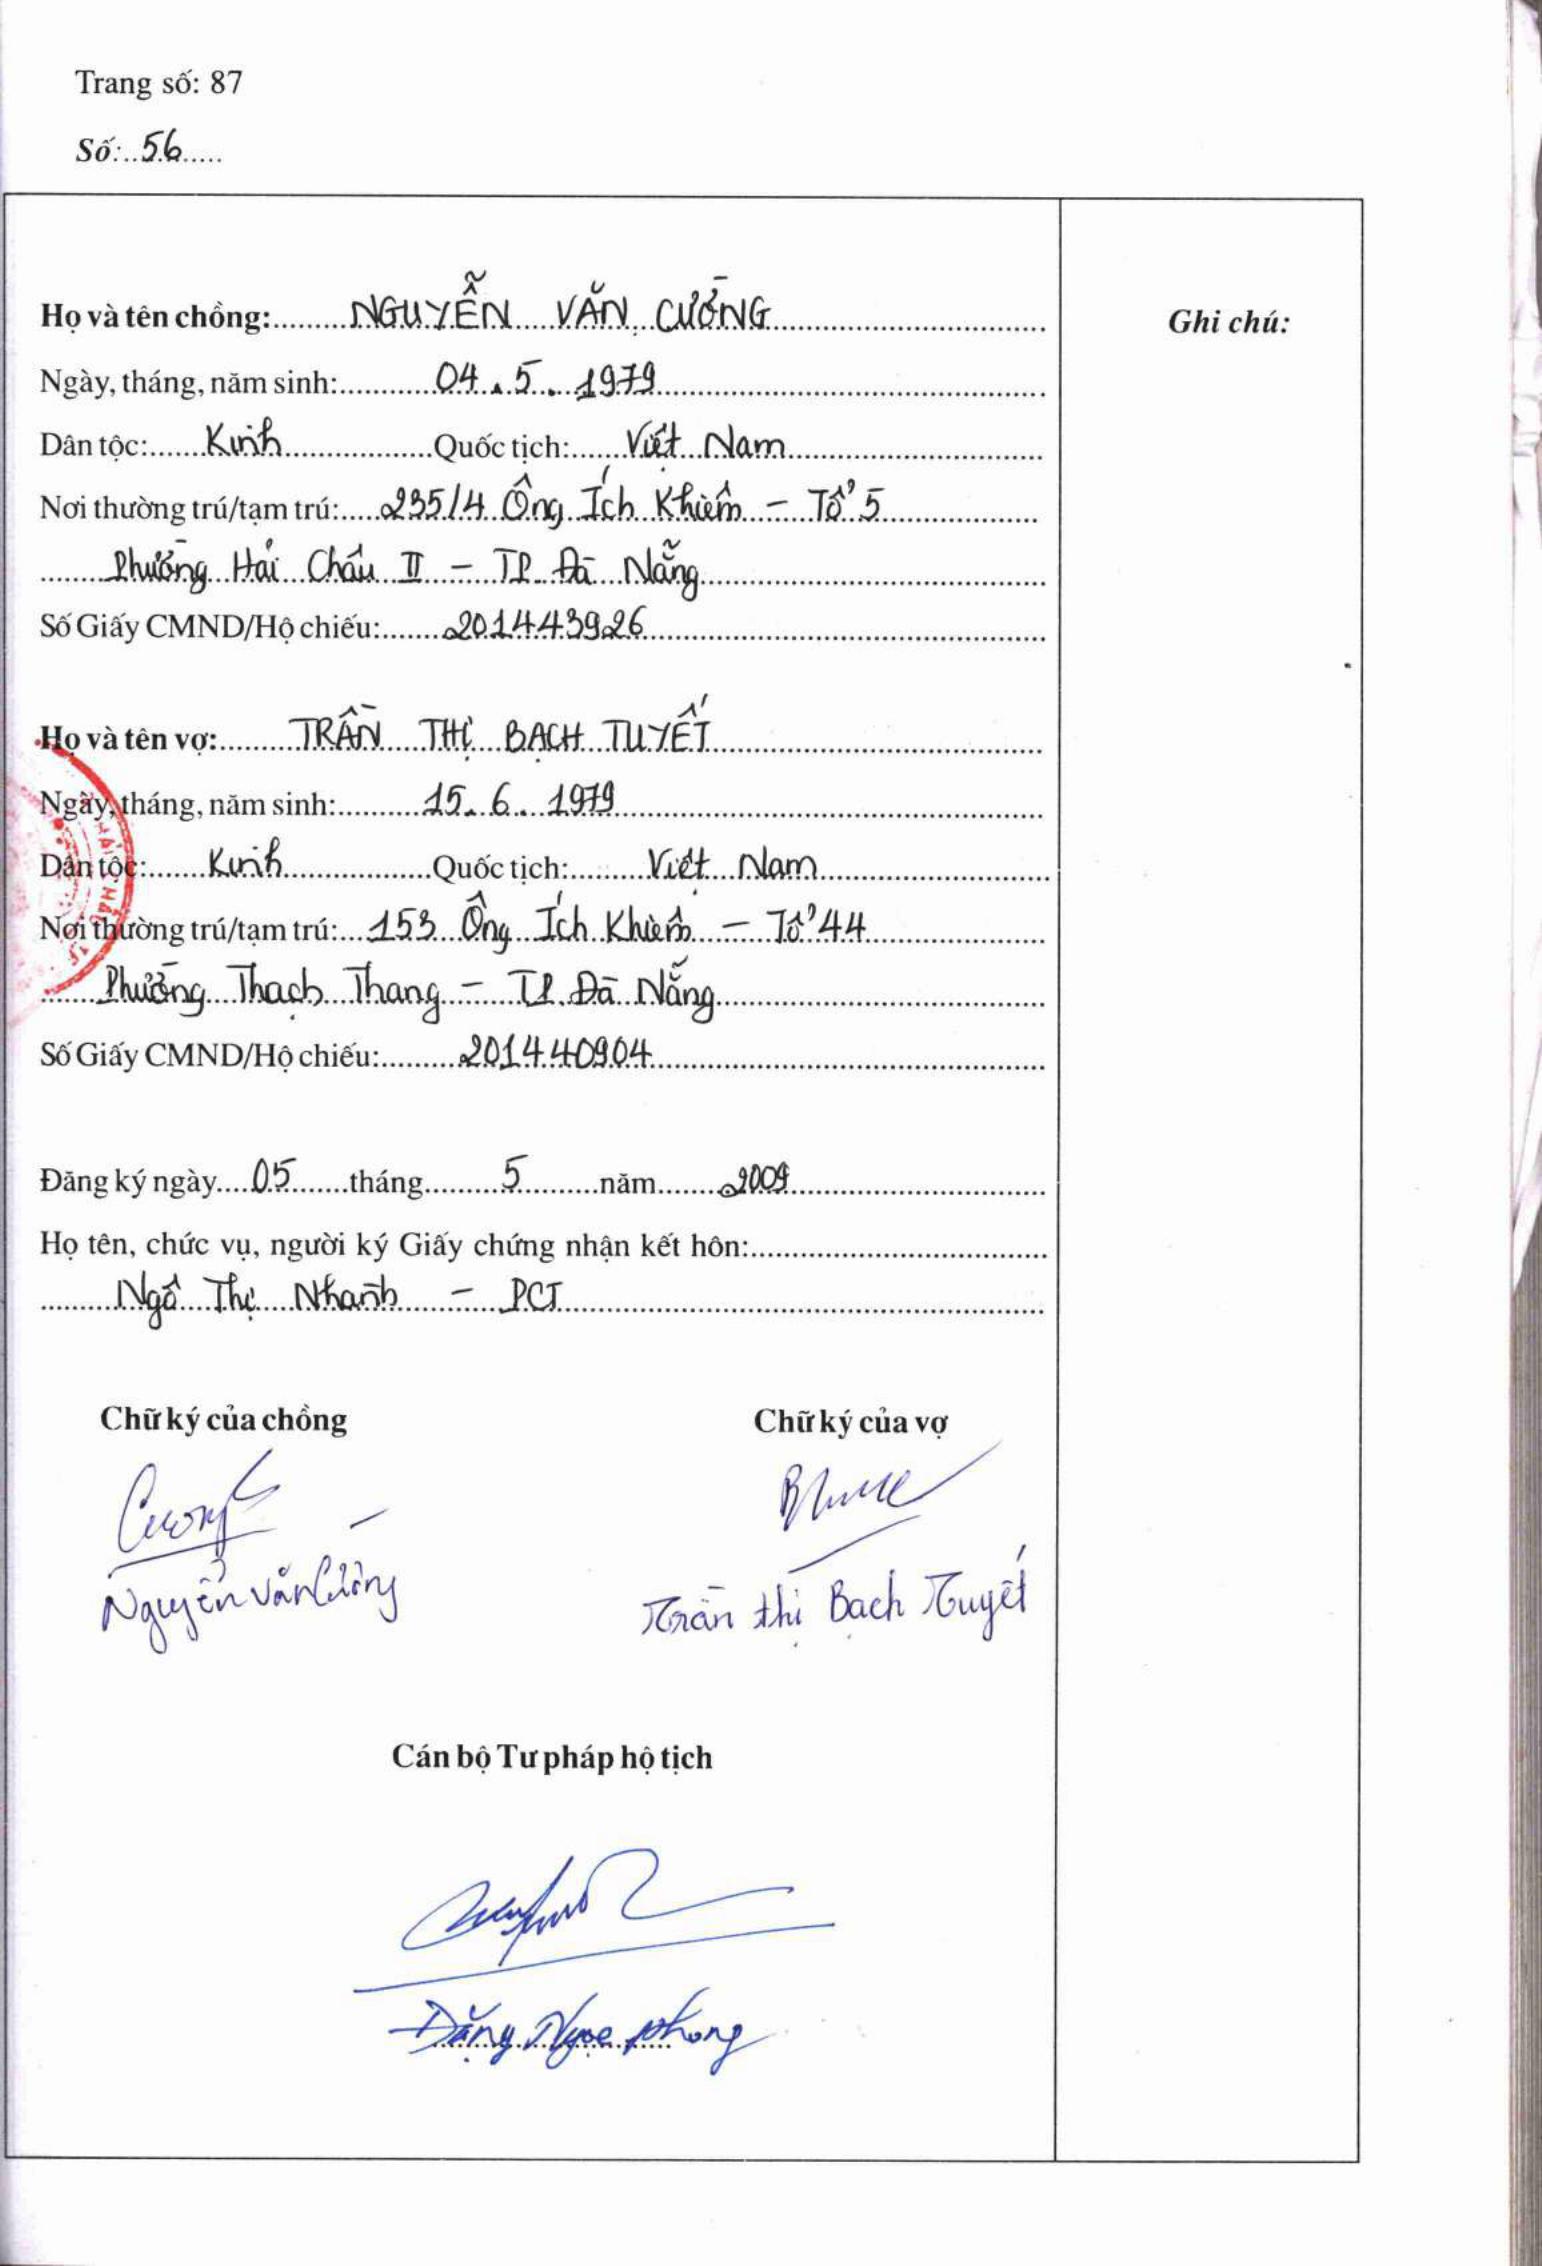 Trang số: 87
Số: 56
Họ và tên chồng: NGUYỄN VĂN CƯỜNG
Ghi chú:
Ngày, tháng, năm sinh: 04.5.1979
Dân tộc: Kinh Quốc tịch: Việt Nam
Nơi thường trú/tạm trú: 235/4 Ông Ích Khiêm - Tổ 5
Phường Hải Châu II - TP. Đà Nẵng
Số Giấy CMND/Hộ chiếu: 201443926
Họ và tên vợ: TRẦN THỊ BẠCH TUYẾT
Ngày, tháng, năm sinh: 15.6.1979
Dân tộc: Kinh Quốc tịch: Việt Nam
Nơi thường trú/tạm trú: 153 Ông Ích Khiêm - Tổ 44
Phường Thạch Thang - TP. Đà Nẵng
Số Giấy CMND/Hộ chiếu: 201440904
Đăng ký ngày 05 tháng 5 năm 2009
Họ tên, chức vụ, người ký Giấy chứng nhận kết hôn:
Ngô Thị Nhành - PCT
Chữ ký của chồng Chữ ký của vợ
Cương
Nguyễn Văn Cường Trần Thị Bạch Tuyết
Cán bộ Tư pháp hộ tịch
Đặng Ngọc Phong